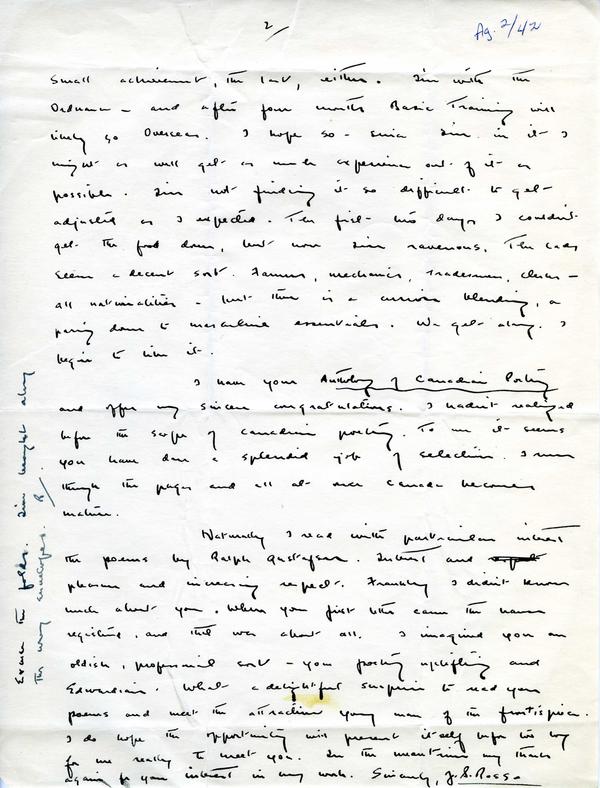 2/
Ag. 2/42
Small achievement, the last, either. I'm with the
Ordnance – and after four months Basic Training will
likely go Overseas. I hope so – since I'm in it I
might as well get as much experience out of it as
possible. I'm not finding it so difficult to get
adjusted as I expected. The first two days I couldn't
get the food down, but now I'm ravenous. The lads
seem a decent sort. Farmers, mechanics, tradesmen, clerks –
all nationalities – but there is a curious blending, a
paring down to masculine essentials. We get along. I
begin to like it.
I have your Anthology of Canadian Poetry
and offer my sincere congratulations. I hadn't realized
before the scope of Canadian poetry. To me it seems
you have done a splendid job of selection. I
through the pages and all at once Canada becomes
mature.
Naturally I read with particular interest
the poems by Ralph Gustafson. Interest and
pleasure and increasing respect. Frankly I didn't know
much about you. When your first letter came the name
registered, and that was about all. I imagined you an
oldish, professional sort – your poetry uplifting and
Edwardian. What a delightful surprise to read your
poems and meet the attractive young man of the frontispiece.
I do hope the opportunity will present itself before too long
for me really to meet you. In the meantime my thanks
again for your interest in my work. Sincerely, J. S. Ross
Excuse the folds. I'm brought along
the wrong envelopes. R/